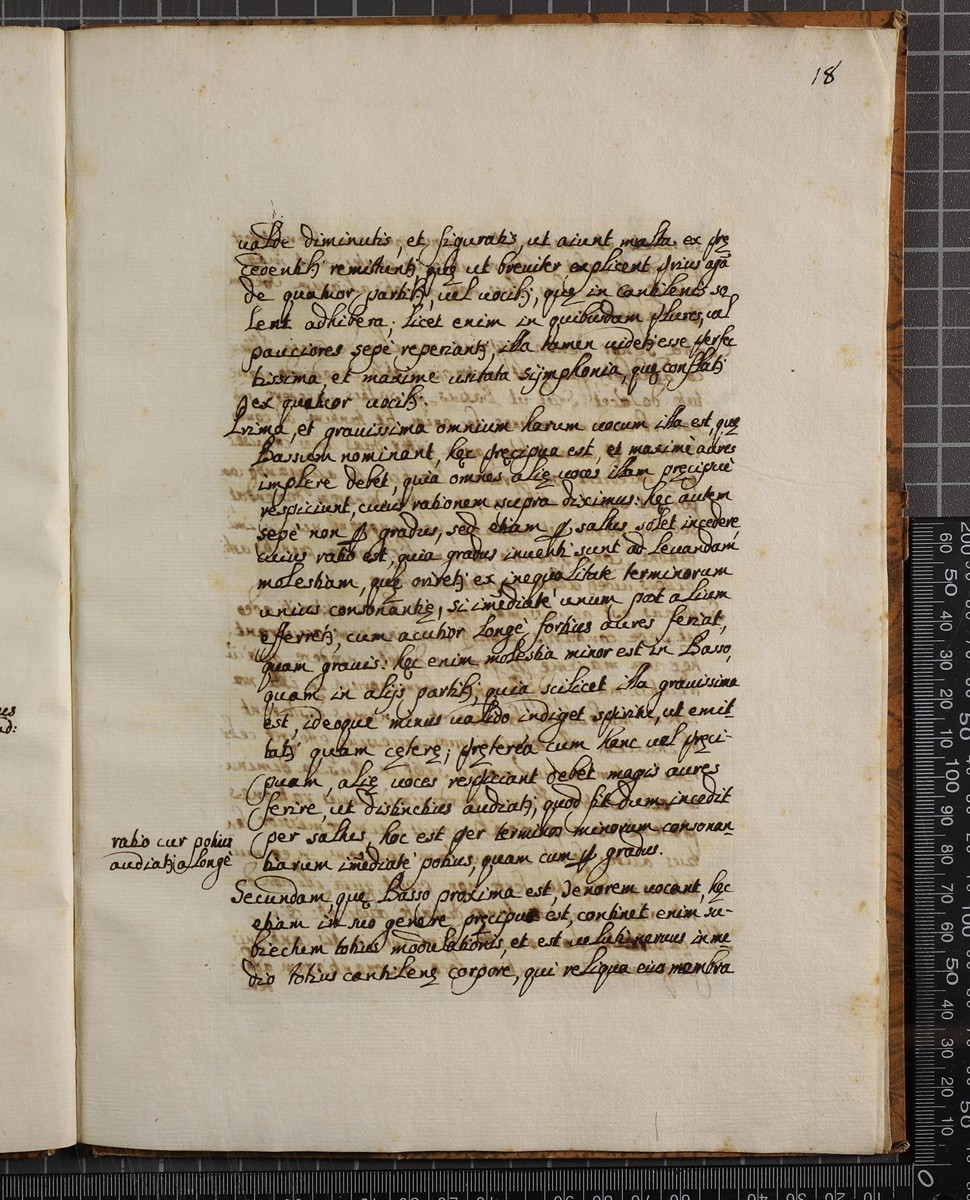 18
valde diminutis, et figuratis, ut aiunt multa ex pre
cedentib; remittunt; quę ut breviter explicent prius agā
de quatuor partib; vel vocib; quę in cantilenis so
lent adhibera; licet enim in quibusdam plures, vel
pauciores sepè reperiant; illa tamen videt; esse perfec
tissima, et maximè usitata symphonia, quę conflat;
ex quatuor vocib;.
Prima, et gravissima omnium harum vocum illa est, quę
Bassum nominant, hęc pręcipua est, et maximè aures
implere debet, quia omnes alię voces illam pręcipuè
respiciunt, cuius rationem supra diximus: hęc autem
sepè non p gradus, sed etiam p saltus solet incedere
cuius ratio est, quia gradus inventi sunt ad levandam
molestiam, quę oriret; ex inequalitate terminorum
unius consonantię, si imēdiatè unum post alium
efferret; cum acutior longè fortius aures feriat,
quam gravis: hęc enim molestia minor est in Basso,
quam in alijs partib; quia scilicet illa gravissima
est, ideoque minus valido indiget spiritu, ut emit
tat; quam cęterę; pręterea cum hanc vel pręci-
puam, alię voces respiciant debet magis aures
ferire, ut distinctius audiat; quod fit dum incedit
per saltus, hoc est per terminos minorum consonan
tiarum imēdiatè potius, quam cum p gradus.
ratio cur potius
audiat; a longè
Secundam, quę Basso proxima est, Tenorem vocant, hęc
etiam in suo genere pręcipua est, continet enim su-
biectum totius modulationis, et est veluti nervus in me
dio totius cantilenę corpore, qui reliqua eius membra